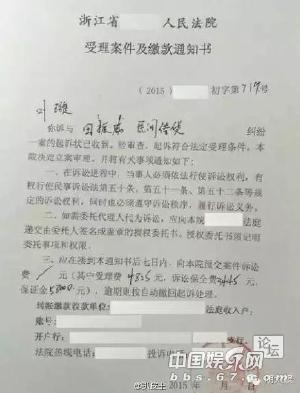 浙江省 人民法院
受理案件及缴款通知书
（2015） 初字第719号
叶璇
你诉与 田振忠 民间借贷 纠纷
一案的起诉状已收到。经审查，起诉符合法定受理条件，本
院决定立案审理，并将有关事项通知如下：
一、在诉讼进程中，当事人必须依法行使诉讼权利，有
权行使民事诉讼法第五十条、第五十一条、第五十二条等规
定的诉讼权利，同时也必须遵守诉讼秩序，履行诉讼义务。
二、如需委托代理人代为诉讼，应向本院 法庭
递交由委托人签名或盖章的授权委托书，授权委托书须记明
委托事项和权限。
三、应在接到本通知书后七日内，向本院预交案件诉讼
费 元（其中受理费 元，诉讼保全费 元，
保证金 元），逾期未预交按自动撤回起诉处理。
到账缴款收款单位： 法庭收入户：
账号：
开户行： 支行。
法院热线电话： 投诉
2015年 月 日
论坛
中国娱乐网
bbs.67.com